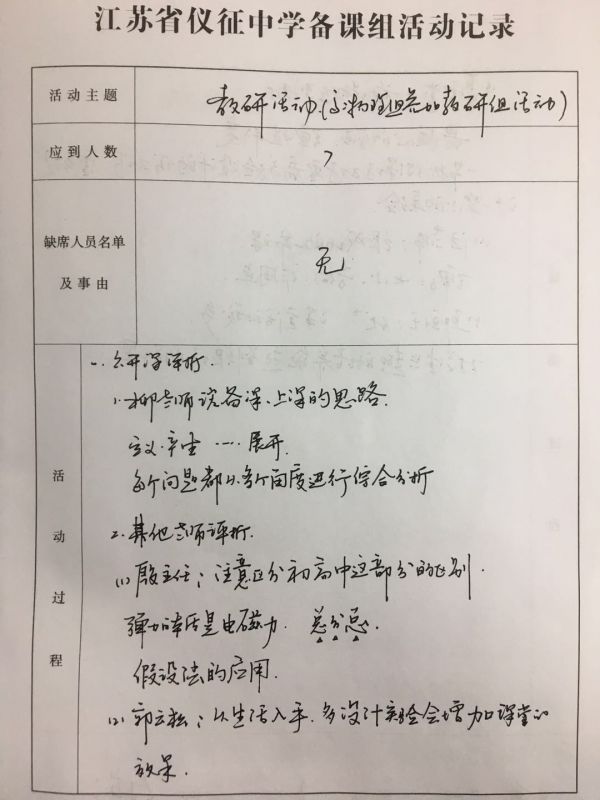 江苏省仪征中学备课组活动记录
活动主题
教研活动.(高物理组参加教研组活动)
应到人数
7
缺席人员名单
及事由
无
活动过程
一. 公开课评析.
1. 柳老师谈备课、上课的思路.
定义.产生 …… 展开.
每个问题都从多个角度进行综合分析
2. 其他老师评析.
(1) 殷主任: 注意区分初高中这部分的区别.
弹力的本质是电磁力. 总分总.
假设法的应用.
(2) 郭云松: 从生活入手.多设计实验会增加课堂的
效果.